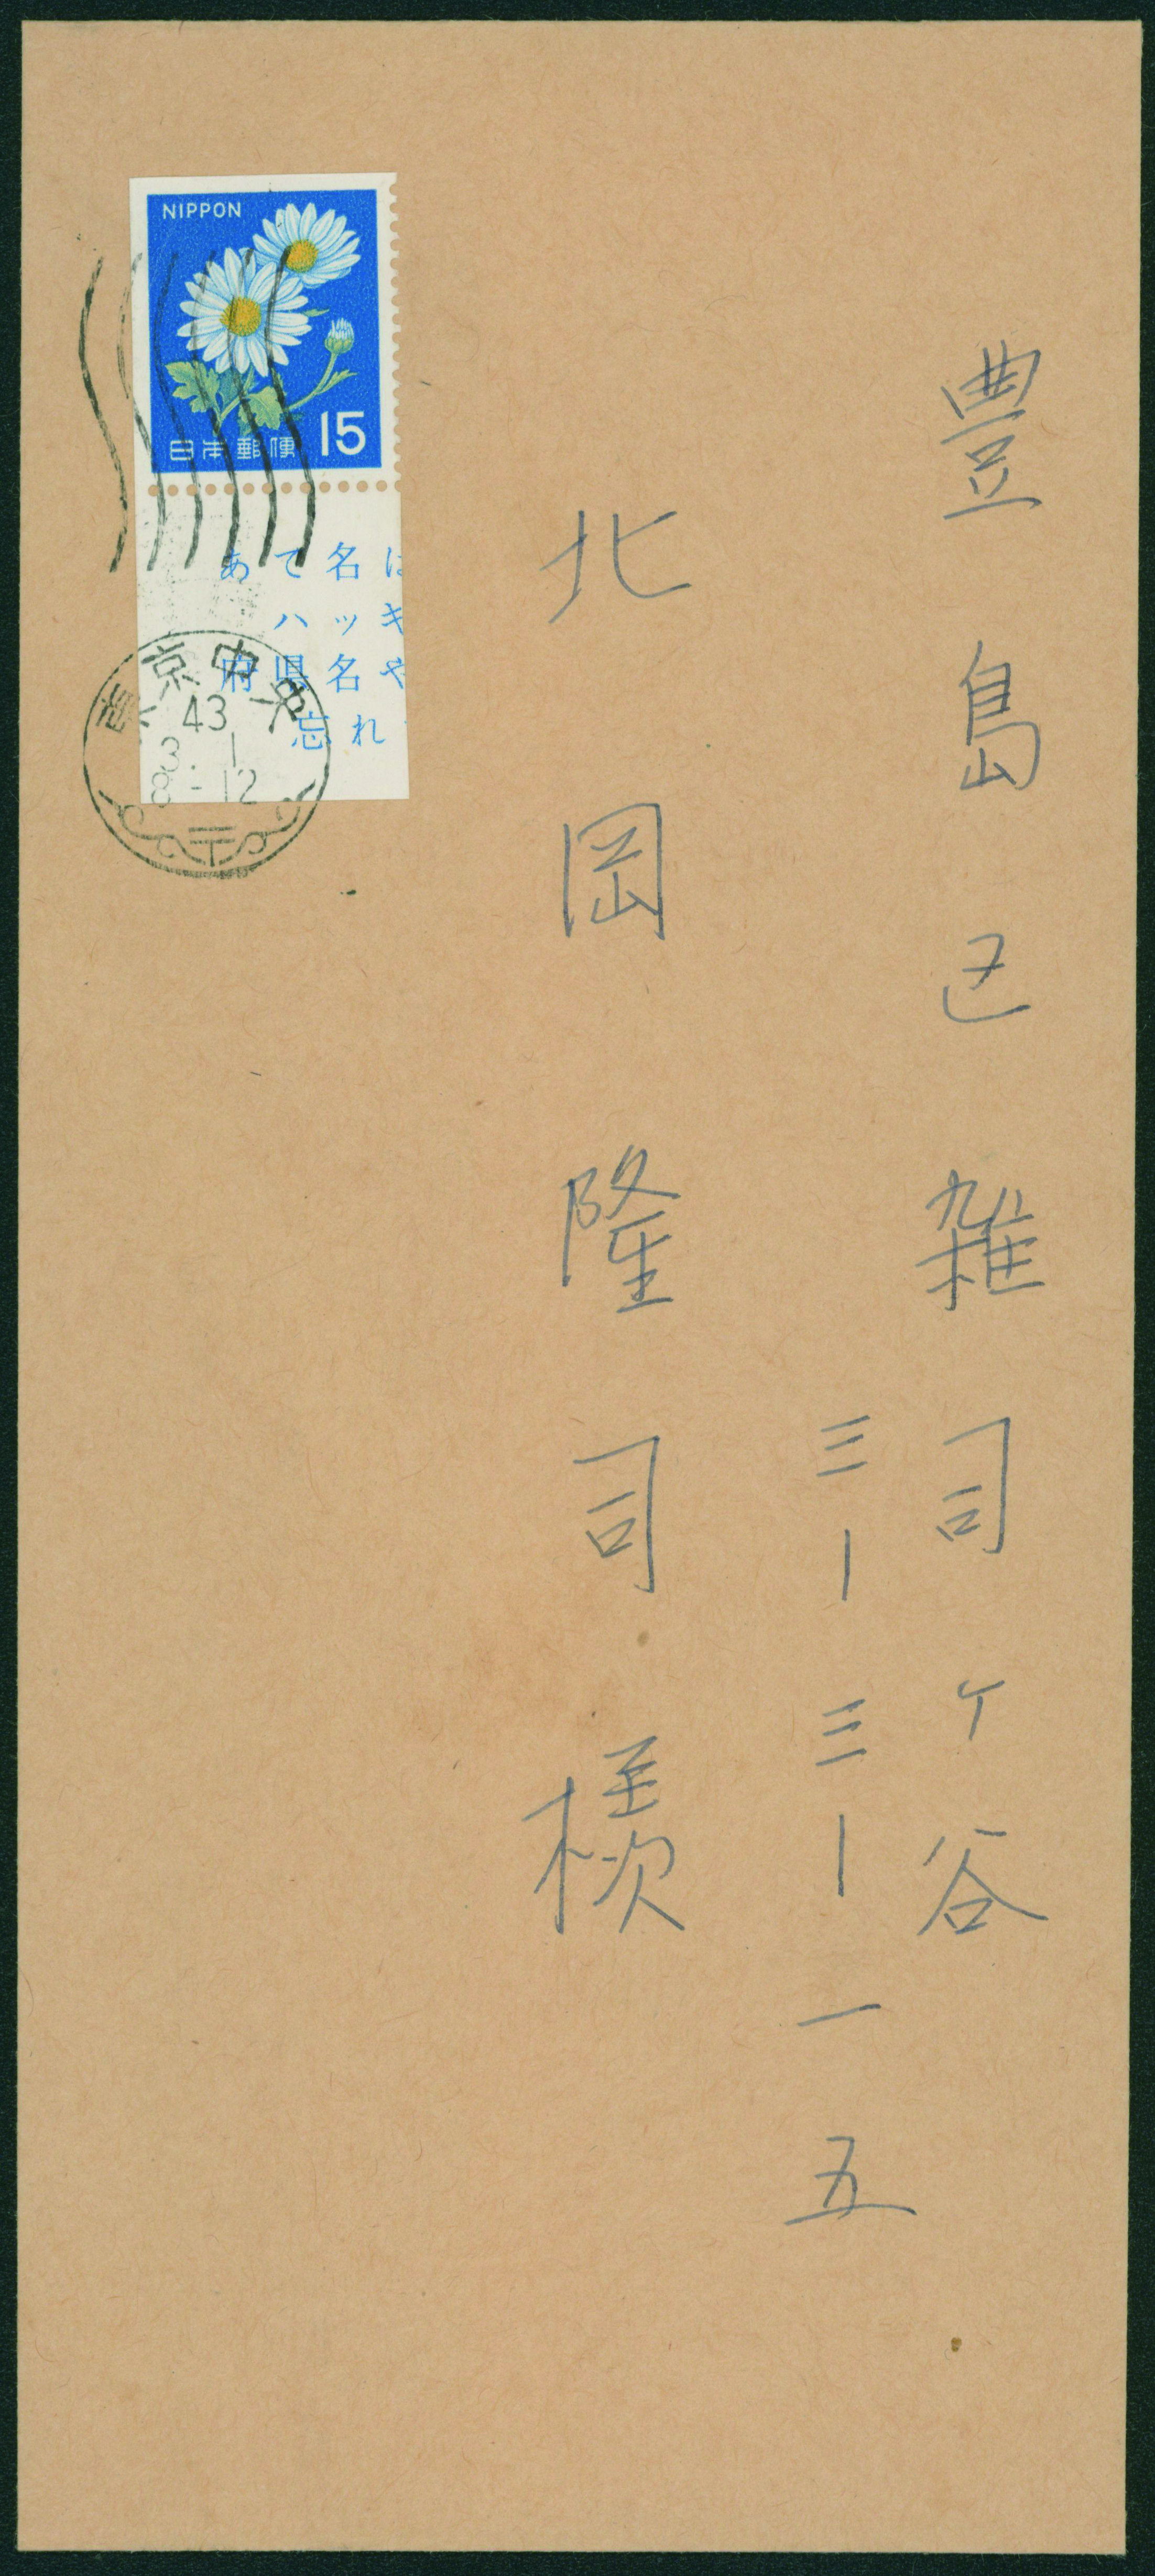 豊島区雑司ヶ谷
三ー三ー一五
北岡隆司様
NIPPON
日本郵便 15
あて名は
ハッキ
府県名や
忘れ
東京中央
43
3. 1
8-12
〒